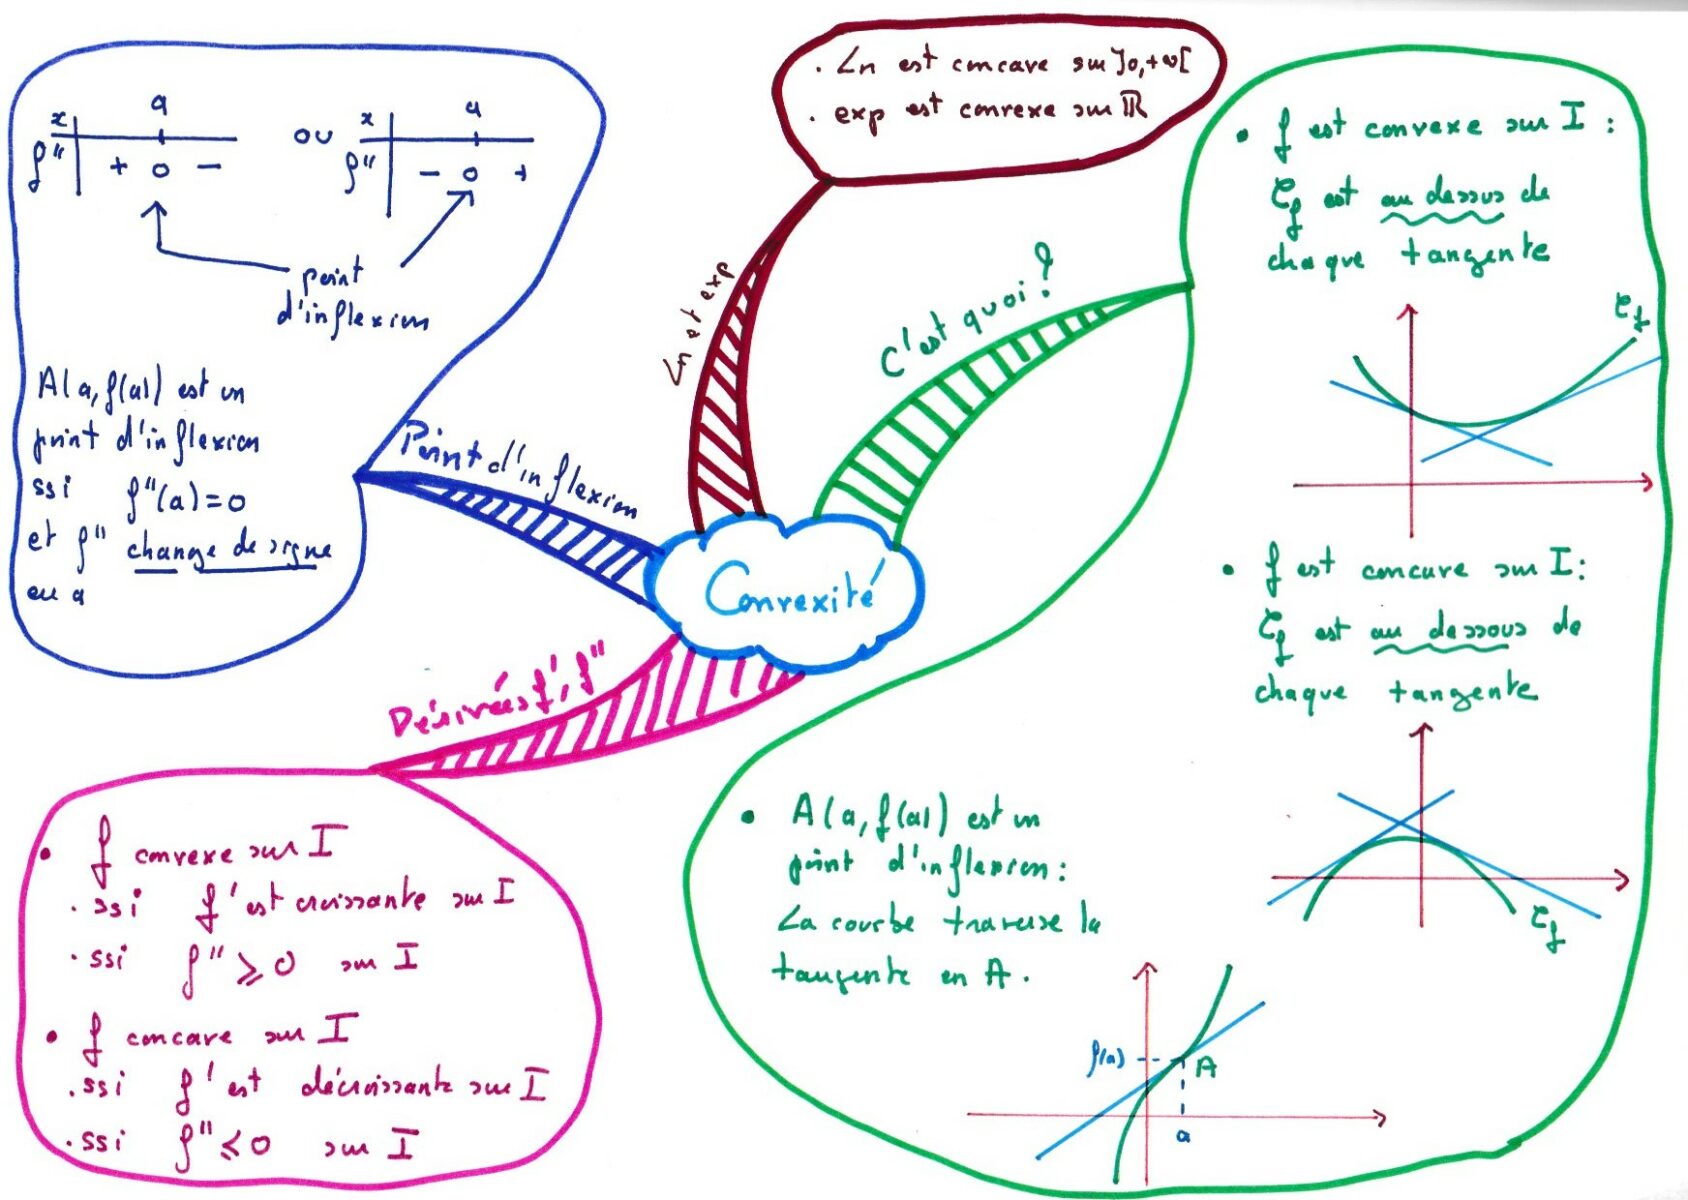 Convexité
Ln et exp
. Ln est concave sur ]0,+∞[
. exp est convexe sur ℝ
C'est quoi ?
• f est convexe sur I :
Cf est au dessus de
chaque tangente
Cf
• f est concave sur I :
Cf est au dessous de
chaque tangente
Cf
• A(a, f(a)) est un
point d'inflexion :
La courbe traverse la
tangente en A.
f(a)
A
a
Point d'inflexion
x a
f" + 0 -
ou
x a
f" - 0 +
point
d'inflexion
A(a, f(a)) est un
point d'inflexion
ssi f"(a)=0
et f" change de signe
en a
Dérivées f', f"
• f convexe sur I
. ssi f' est croissante sur I
. ssi f" ⩾ 0 sur I
• f concave sur I
. ssi f' est décroissante sur I
. ssi f" ⩽ 0 sur I